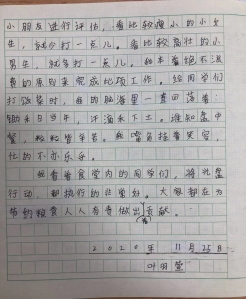 小朋友进行评估，看比较瘦小的小女
生，就少打一点儿。看比较高壮的小
男生，就多打一点儿。秉着绝不浪
费的原则来完成此项工作。给同学们
打饭菜时，我的脑海里一直回荡着：
锄禾日当午，汗滴禾下土。谁知盘中
餐，粒粒皆辛苦。我嘴角挂着笑容，
忙的不亦乐乎。
我看着食堂内的同学们，将光盘
行动，都执行的非常好。大家都在为
节约粮食人人有责做出贡献。
2020年11月25日
叶羽萱